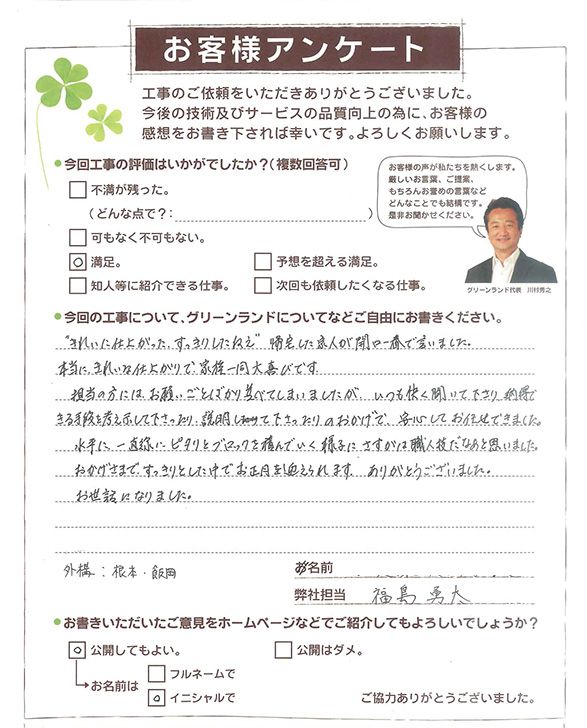 お客様アンケート
工事のご依頼をいただきありがとうございました。
今後の技術及びサービスの品質向上の為に、お客様の
感想をお書き下されば幸いです。よろしくお願いします。
今回工事の評価はいかがでしたか?(複数回答可)
お客様の声が私たちを熱くします。
厳しいお言葉、ご提案、
もちろんお誉めの言葉など
どんなことでも結構です。
是非お聞かせください。
グリーンランド代表 川村秀之
不満が残った。
(どんな点で?: )
可もなく不可もない。
満足。
予想を超える満足。
知人等に紹介できる仕事。
次回も依頼したくなる仕事。
今回の工事について、グリーンランドについてなどご自由にお書きください。
"きれいに仕上がった、すっきりしたねえ" 帰宅した家人が開口一番で言いました。
本当に、きれいな仕上がりで、家族一同大喜びです。
担当の方には、お願いごとばかり並べてしまいましたが、いつも快く聞いて下さり 納得で
きる手段を考え示して下さったり、説明して下さったりのおかげで、安心してお任せできました。
水平に、一直線に、ピタリとブロックを積んでいく様子に さすがは職人技だなあと思いました。
おかげさまで、すっきりとした中でお正月を迎えられます。ありがとうございました。
お世話になりました。
外構:根本・飯岡
お名前
弊社担当 福島 勇太
お書きいただいたご意見をホームページなどでご紹介してもよろしいでしょうか?
公開してもよい。
公開はダメ。
お名前は
フルネームで
イニシャルで
ご協力ありがとうございました。